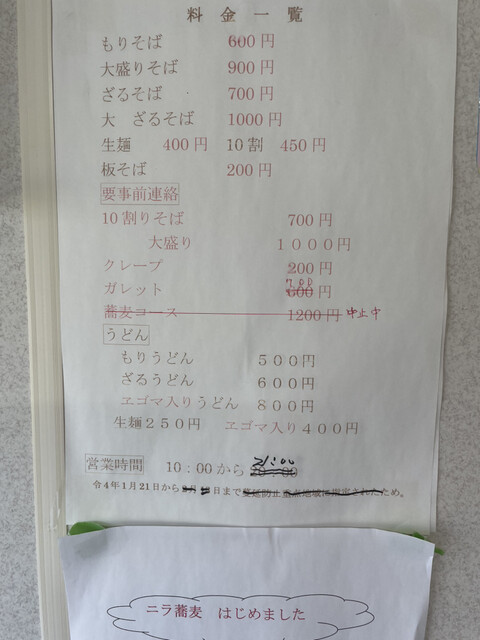 料金一覧
もりそば 600円
大盛りそば 900円
ざるそば 700円
大 ざるそば 1000円
生麺 400円 10割 450円
板そば 200円
要事前連絡
10割りそば 700円
大盛り 1000円
クレープ 200円
700
ガレット 600円
蕎麦コース 1200円 中止中
うどん
もりうどん 500円
ざるうどん 600円
ヱゴマ入りうどん 800円
生麺250円 ヱゴマ入り400円
21:00
営業時間 10:00から 20:00
令4年1月21日から 日まで 蔓延防止重点地域に指定されたため。
ニラ蕎麦 はじめました